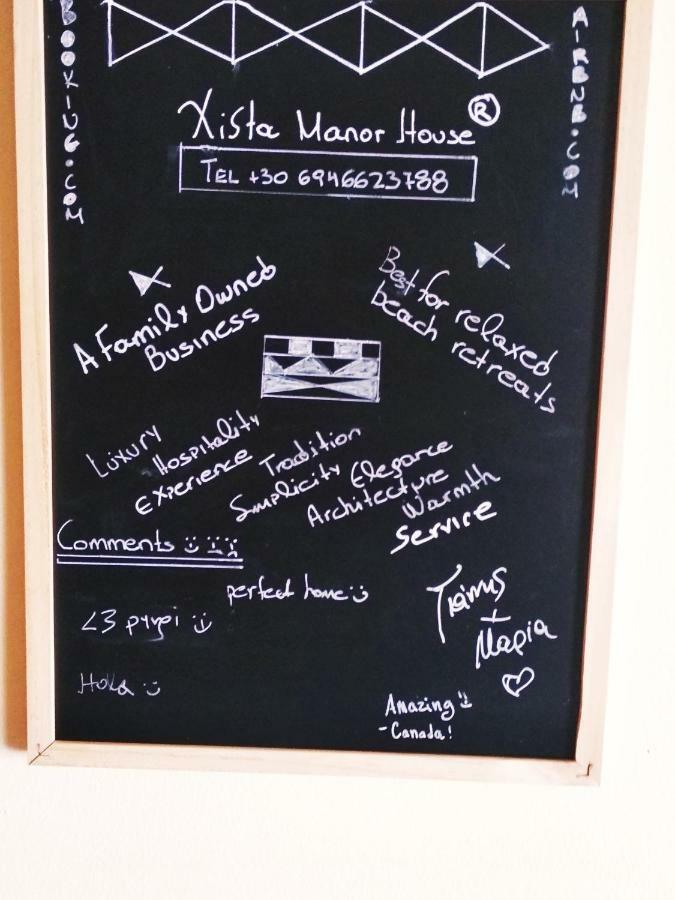 BOOKING.COM
AIRBNB.COM
Xista Manor House ®
TEL +30 6946623788
A Family Owned
Business
Best for relaxed
beach retreats
Luxury
Hospitality
Experience
Tradition
Simplicity
Elegance
Architecture
Warmth
Service
Comments :) :| :(
perfect home :)
<3 ρυρι :)
Hola :)
+
Μαρία
♡
Amazing :)
-Canada!